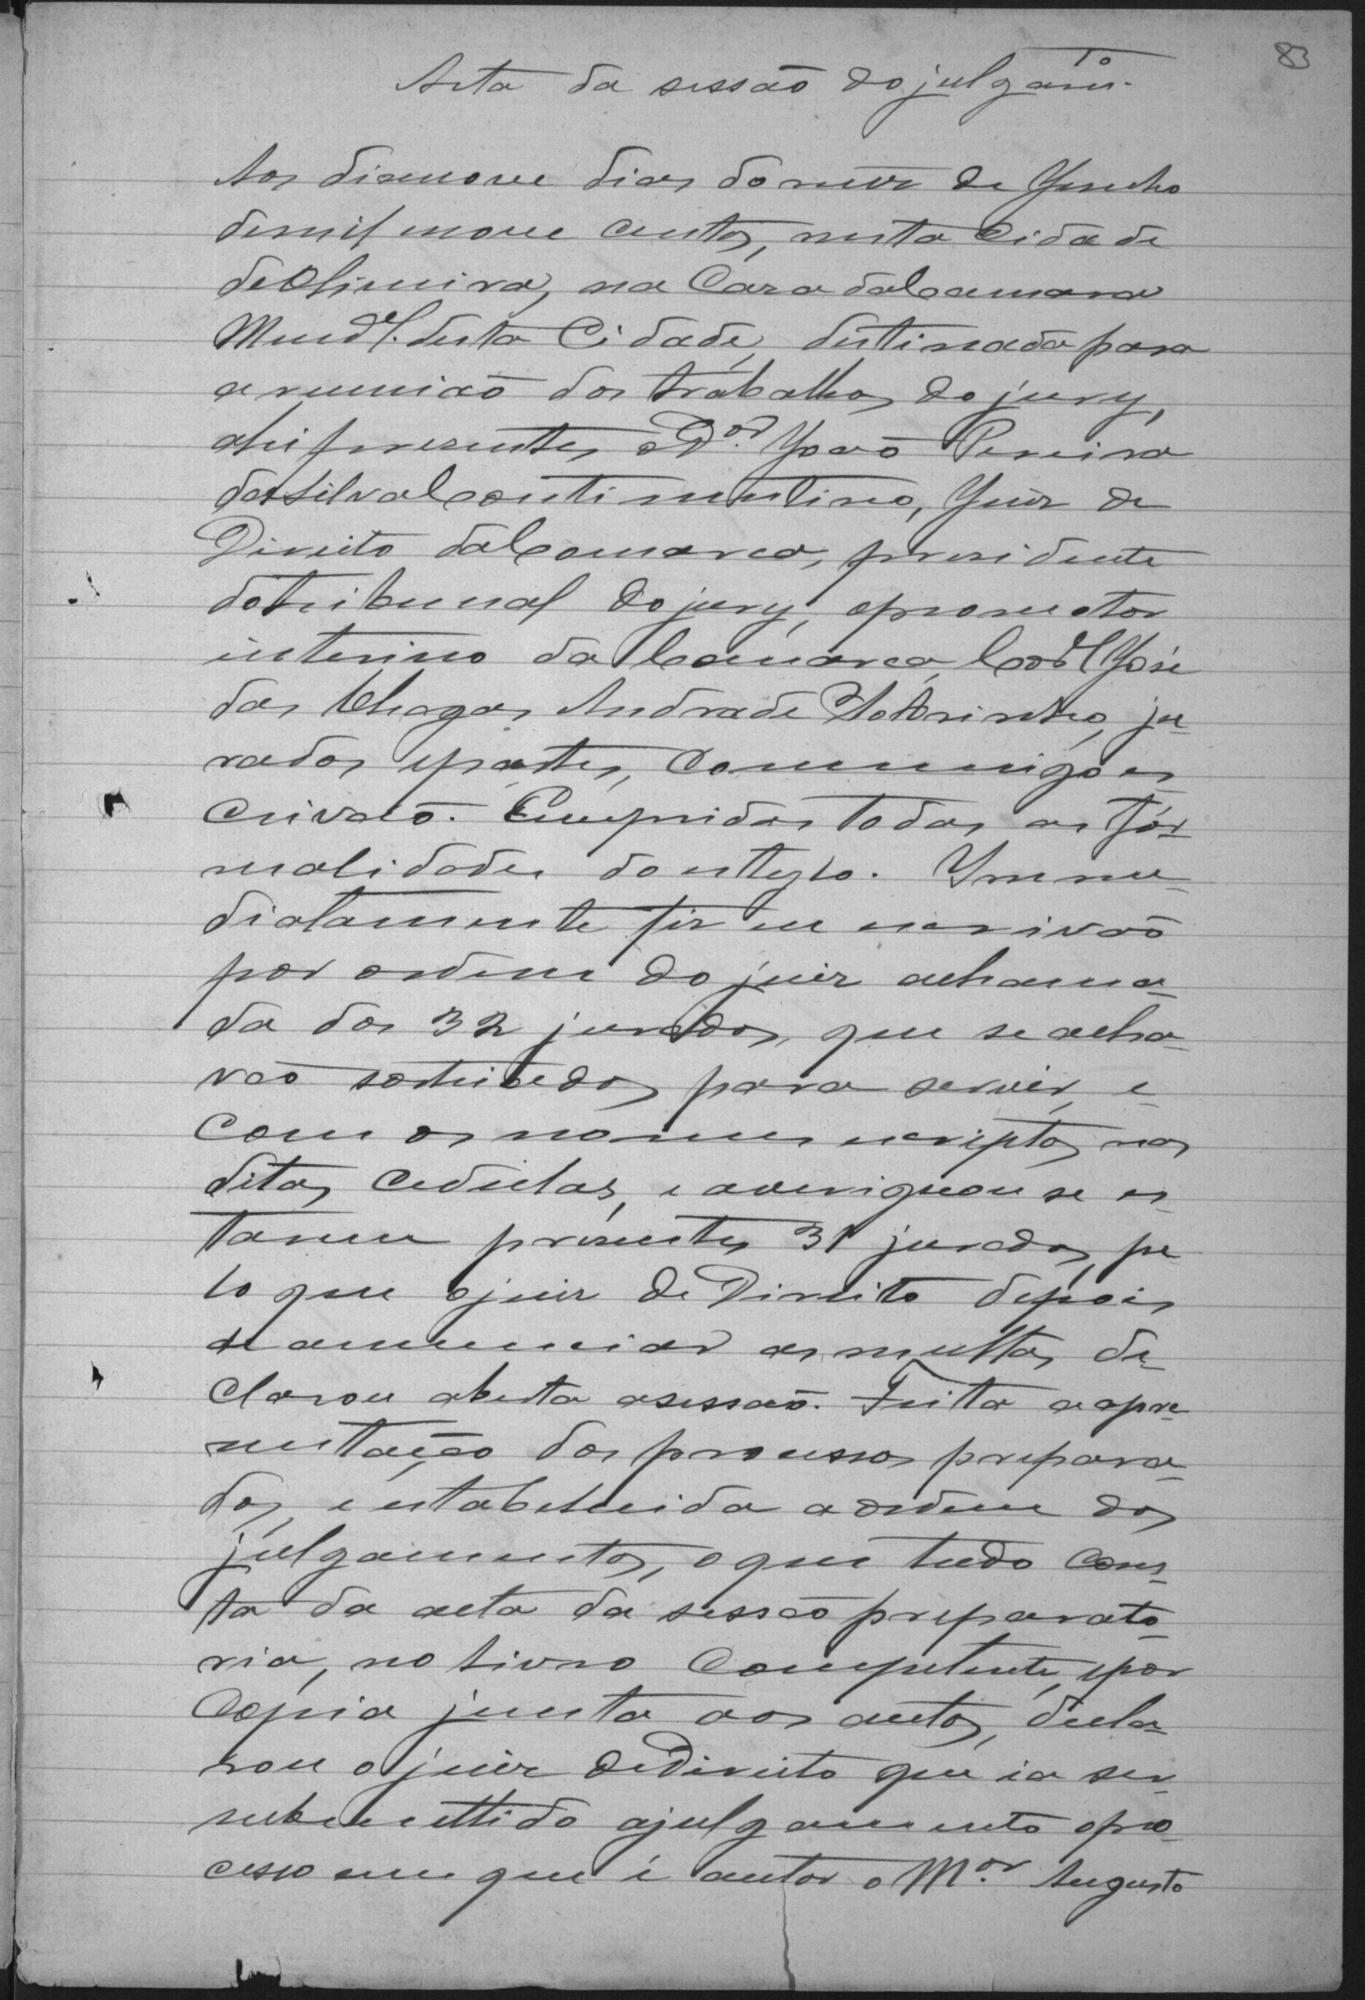 83
Acta da sessão do julgam.to
Aos dizenove dias do mez de Junho
de mil nove centos, nesta Cidade
de Oliveira, na Caza da Camara
Mun.al desta Cidade, destinada para
a reunião dos trabalhos do jury,
ahi presentes, o D.or João Pereira
da Silva Continentino, Juiz de
Direito da Comarca, presidente
do tribunal do jury, o promotor
interino da Comarca, C.el José
das Chagas Andrade Sobrinho, ju-
rados e partes, commigo es
crivão. Cumpridas todas as for-
malidades do estylo. Imme-
diatamente fiz eu escrivão
por ordem do juiz a chama-
da dos 32 jurados, que se acha-
vão sorteados para servir, e
com os nomes escriptos nas
ditas cedulas, e averiguou se es
tarem prezentes 31 jurados, pe
lo que o juiz de Direito depois
de annunciar as multas, de-
clarou aberta a sessão. Feita a apre
sentação dos processos prepara-
dos, e estabelecida a ordem dos
julgamentos, o que tudo cons-
ta da acta da sessão preparato-
ria, no livro competente, e por
copia junta aos autos, decla-
rou o juiz de Direito que ia ser
submettido a julgamento o pro
cesso em que é autor o M.or Augusto